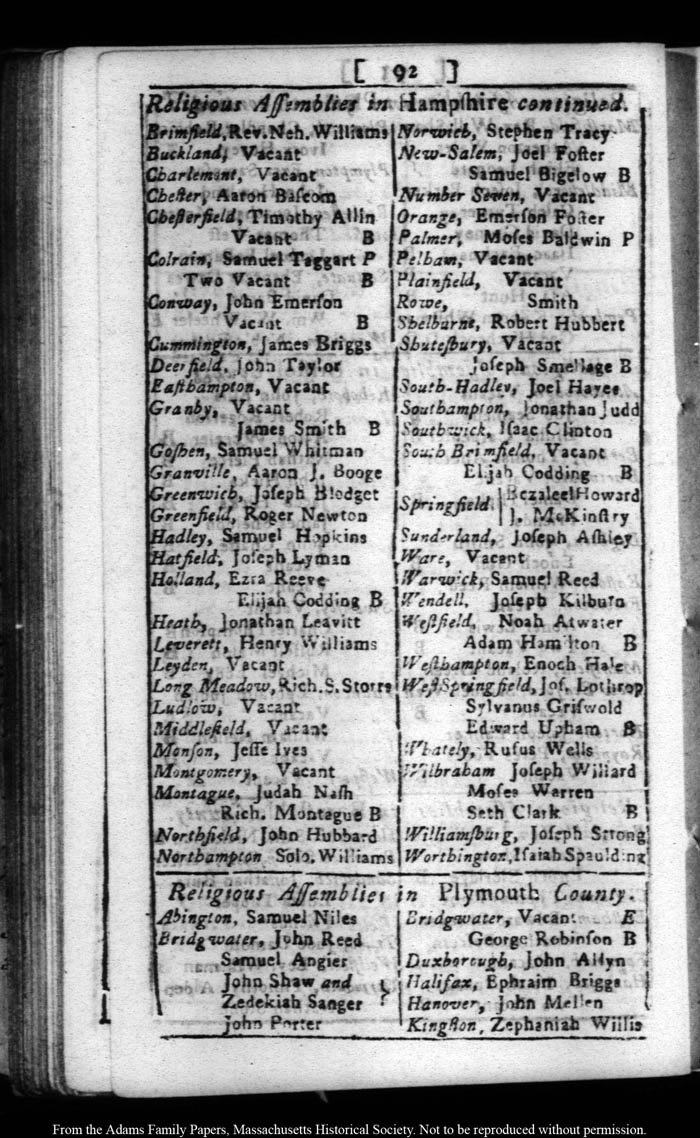 [ 92 ]
Religious Aſſemblies in Hampſhire continued.
Brimfield, Rev. Neh. Williams
Buckland, Vacant
Charlemont, Vacant
Cheſter, Aaron Baſcom
Cheſterfield, Timothy Allin
Vacant B
Colrain, Samuel Taggart P
Two Vacant B
Conway, John Emerſon
Vacant B
Cummington, James Briggs
Deerfield, John Taylor
Eaſthampton, Vacant
Granby, Vacant
James Smith B
Goſhen, Samuel Whitman
Granville, Aaron J. Booge
Greenwich, Joſeph Blodget
Greenfield, Roger Newton
Hadley, Samuel Hopkins
Hatfield, Joſeph Lyman
Holland, Ezra Reeve
Elijah Codding B
Heath, Jonathan Leavitt
Leverett, Henry Williams
Leyden, Vacant
Long Meadow, Rich. S. Storrs
Ludlow, Vacant
Middlefield, Vacant
Monſon, Jeſſe Ives
Montgomery, Vacant
Montague, Judah Naſh
Rich. Montague B
Northfield, John Hubbard
Northampton Solo. Williams
Norwich, Stephen Tracy
New-Salem, Joel Foſter
Samuel Bigelow B
Number Seven, Vacant
Orange, Emerſon Foſter
Palmer, Moſes Baldwin P
Pelham, Vacant
Plainfield, Vacant
Rowe, Smith
Shelburne, Robert Hubbert
Shuteſbury, Vacant
Joſeph Smellage B
South-Hadley, Joel Hayes
Southampton, Jonathan Judd
Southwick, Iſaac Clinton
South Brimfield, Vacant
Elijah Codding B
Springfield Bezaleel Howard
J. McKinſtry
Sunderland, Joſeph Aſhley
Ware, Vacant
Warwick, Samuel Reed
Wendell, Joſeph Kilburn
Weſtfield, Noah Atwater
Adam Hamilton B
Weſthampton, Enoch Hale
Weſt Springfield, Joſ. Lothrop
Sylvanus Griſwold
Edward Upham B
Whately, Rufus Wells
Wilbraham Joſeph Williard
Moſes Warren
Seth Clark B
Williamſburg, Joſeph Strong
Worthington, Iſaiah Spaulding
Religious Aſſemblies in Plymouth County.
Abington, Samuel Niles
Bridgwater, John Reed
Samuel Angier
John Shaw and
Zedekiah Sanger
John Porter
Bridgwater, Vacant E
George Robinſon B
Duxborough, John Allyn
Halifax, Ephraim Briggs
Hanover, John Mellen
Kingſton, Zephaniah Willis
From the Adams Family Papers, Massachusetts Historical Society. Not to be reproduced without permission.